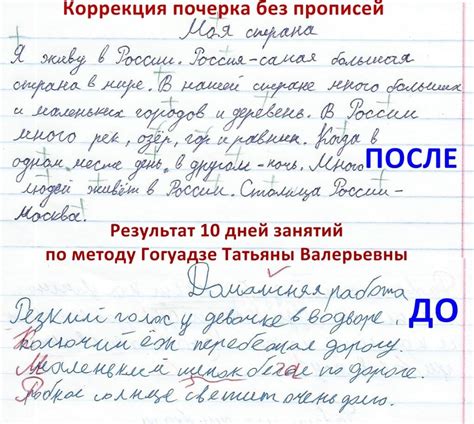 Коррекция почерка без прописей
Моя страна
Я живу в России. Россия-самая большая
страна в мире. В нашей стране много больших
и маленьких городов и деревень. В России
много рек, озёр, гор и равнин. Когда в
одном месте день, в другом-ночь. Много
ПОСЛЕ
людей живёт в России. Столица России-
Москва.
Результат 10 дней занятий
по методу Гогуадзе Татьяны Валерьевны
Домашняя работа
ДО
Резкий голос у девочке в
Колючий ёж перебегал дорогу.
Маленький щенок бегал по дороге.
солнце светит очень